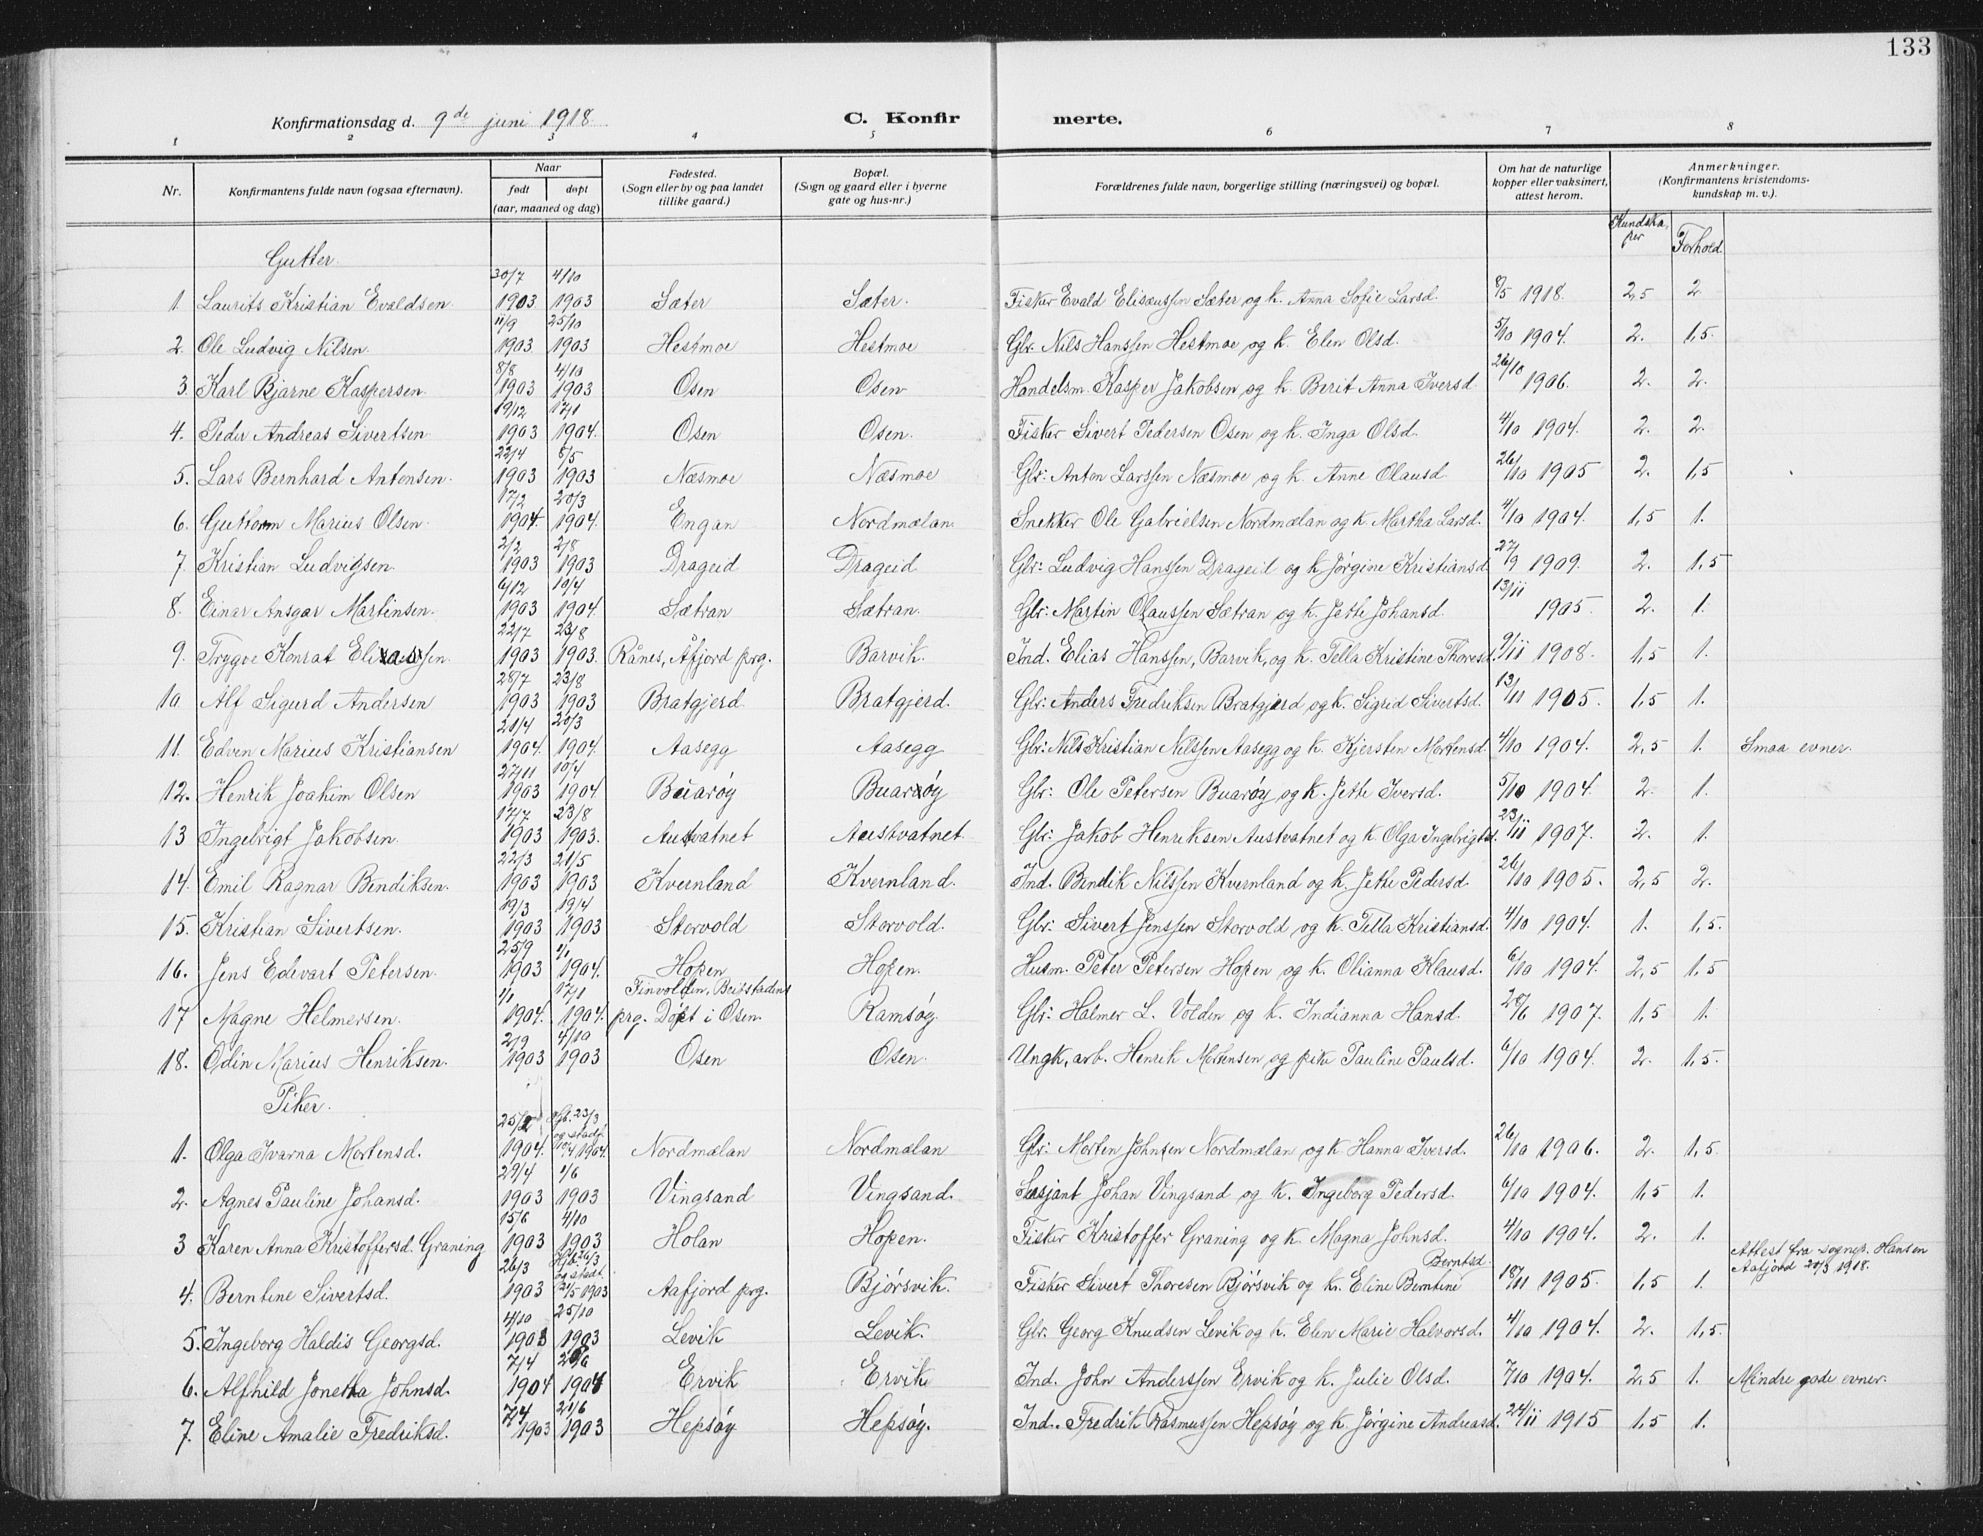 133
Konfirmationsdag d. 9de juni 1918. C. Konfirmerte.
1 2 3 4 5 6 7 8
Nr. Konfirmantens fulde navn (ogsaa efternavn). Naar født døpt (aar, maaned og dag) Fødested. (Sogn eller by og paa landet tillike gaard.) Bopæl. (Sogn og gaard eller i byerne gate og hus-nr.) Forældrenes fulde navn, borgerlige stilling (næringsvei) og bopæl. Om hat de naturlige kopper eller vaksinert, attest herom. Anmerkninger. (Konfirmantens kristendomskundskap m. v.).
Kundskaper Forhold
Gutter.
1. Laurits Kristian Evaldsen. 30/7 1903 4/10 1903 Sæter Sæter. Fisker Evald Eliseussen Sæter og k. Anna Sofie Larsd. 8/5 1918. 2,5 2
2. Ole Ludvig Nilsen. 11/9 1903 25/10 1903 Hestmoe Hestmoe Gbr. Nils Hanssen Hestmoe og k. Elen Olsd. 5/10 1904. 2. 1,5
3. Karl Bjarne Kaspersen. 8/8 1903 4/10 1903 Osen Osen Handelsm. Kasper Jakobsen og k. Berit Anna Iversd. 26/10 1906. 2. 2.
4. Peder Andreas Sivertsen 19/12 1903 17/1 1904. Osen Osen. Fisker Sivert Pedersen Osen og k. Inga Olsd. 4/10 1904. 2. 2
5. Lars Bernhard Antonsen. 22/4 1903 8/5 1903 Næsmoe Næsmoe Gbr: Anton Larssen Næsmoe og k. Anne Olausd 26/10 1905 2. 1,5
6. Guttorm Marius Olsen. 17/2 1904. 20/3 1904. Engan Nordmælan Snekker Ole Gabrielsen Nordmælan og k. Martha Larsd. 4/10 1904. 1,5 1.
7. Kristian Ludvigsen. 2/2 1903 2/8 1903 Drageid Drageid Gbr: Ludvig Hanssen Drageid og k. Jørgine Kristiansd 27/9 1909. 2. 1,5
8. Einar Ansgar Martinsen. 6/12 1903 10/4 1904. Sætran Sætran. Gbr: Martin Olaussen Sætran og k. Jette Johansd. 13/11 1905. 2. 1.
9. Trygve Konrat Eliassen. 22/7 1903 23/8 1903. Rånes, Åfjord prg. Barvik. Ind. Elias Hanssen, Barvik, og k. Tella Kristine Thoresd. 9/11 1908. 1,5 1.
10. Alf Sigurd Andersen 28/7 1903 23/8 1903 Bratgjerd Bratgjerd. Gbr: Anders Fredriksen Bratgjerd og k. Sigrid Sivertsd. 13/11 1905. 1,5 1.
11. Edvin Marius Kristiansen 21/4 1904. 20/3 1904. Aasegg Aasegg Gbr: Nils Kristian Nilssen Aasegg og k. Kjersten Mortensd. 4/10 1904. 2,5 1. Smaa evner.
12. Henrik Joakim Olsen 27/11 1903 10/4 1904 Buarøy Buarøy Gbr: Ole Petersen Buarøy og k. Jette Iversd. 5/10 1904. 2. 1.
13 Ingebrigt Jakobsen. 17/7 1903 23/8 1903. Austvatnet Austvatnet Gbr: Jakob Henriksen Austvatnet og k. Olga Ingebrigtsd. 23/11 1907. 2. 1.
14. Emil Ragnar Bendiksen. 22/3 1903 21/5 1903 Kvernland Kvernland. Ind. Bendik Nilssen Kvernland og k. Jette Pedersd. 26/10 1905. 2,5 2.
15. Kristian Sivertsen. 19/3 1903 19/4 1903 Storvold Storvold. Gbr: Sivert Jenssen Storvold og k. Tella Kristiansd. 4/10 1904. 1. 1,5.
16. Jens Edevart Petersen. 25/9 1903 1/1 1904. Hopen Hopen. Husm. Peter Petersen Hopen og k. Olianna Klausd. 6/10 1904. 2,5 1,5
17 Magne Helmersen. 1/1 1904. 17/1 1904. Finvolden, Beitstadens prg. Døpt i Osen. Ramsøy. Gbr: Halmer L. Volden og k. Indianna Hansd. 28/6 1907. 1,5 1.
18. Odin Marius Henriksen. 2/9 1903 4/10 1903 Osen Osen. Ungk. arb. Henrik Mortensen og pike Pauline Paulsd. 6/10 1904. 2. 1,5.
Piker.
1. Olga Ivarna Mortensd. 25/2 1904. Hjb. 23/3 og stadf. 10/4 1904. Nordmælan Nordmælan Gbr: Morten Johnsen Nordmælan og k. Hanna Iversd. 26/10 1906. 2. 1,5
2. Agnes Pauline Johansd. 29/4 1903 1/6 1903 Vingsand Vingsand. Sersjant Johan Vingsand og k. Ingeborg Pedersd. 6/10 1904. 1,5 1.
3 Karen Anna Kristoffersd. Graning 15/6 1903 4/10 1903 Holan Hopen. Fisker Kristoffer Graning og k. Magna Johnsd. 4/10 1904. 2. 1.
4. Berntine Sivertsd. 26/3 1903 Hjb. 26/3 og stadf. 21/5 1903 Aafjord prg. Bjørsvik. Fisker Sivert Thoresen Bjørsvik og k. Eline Berntine Berntsd. 18/11 1905. 1,5 1. Attest fra sognep. Hansen Aafjord 20/3 1918.
5. Ingeborg Haldis Georgsd. 4/10 1903 25/10 1903 Levik Levik. Gbr. Georg Knudsen Levik og k. Elen Marie Halvorsd. 4/10 1904. 2. 1,5.
6. Alfhild Jonetta Johnsd. 7/4 1904 26/6 1904 Ervik Ervik Ind. John Anderssen Ervik og k. Julie Olsd. 7/10 1904. 2,5 1. Mindre gode evner.
7. Eline Amalie Fredriksd. 7/4 1903 21/6 1903 Hepsøy Hepsøy. Ind. Fredrik Rasmussen Hepsøy og k. Jørgine Andreasd. 24/11 1915 1,5 1.